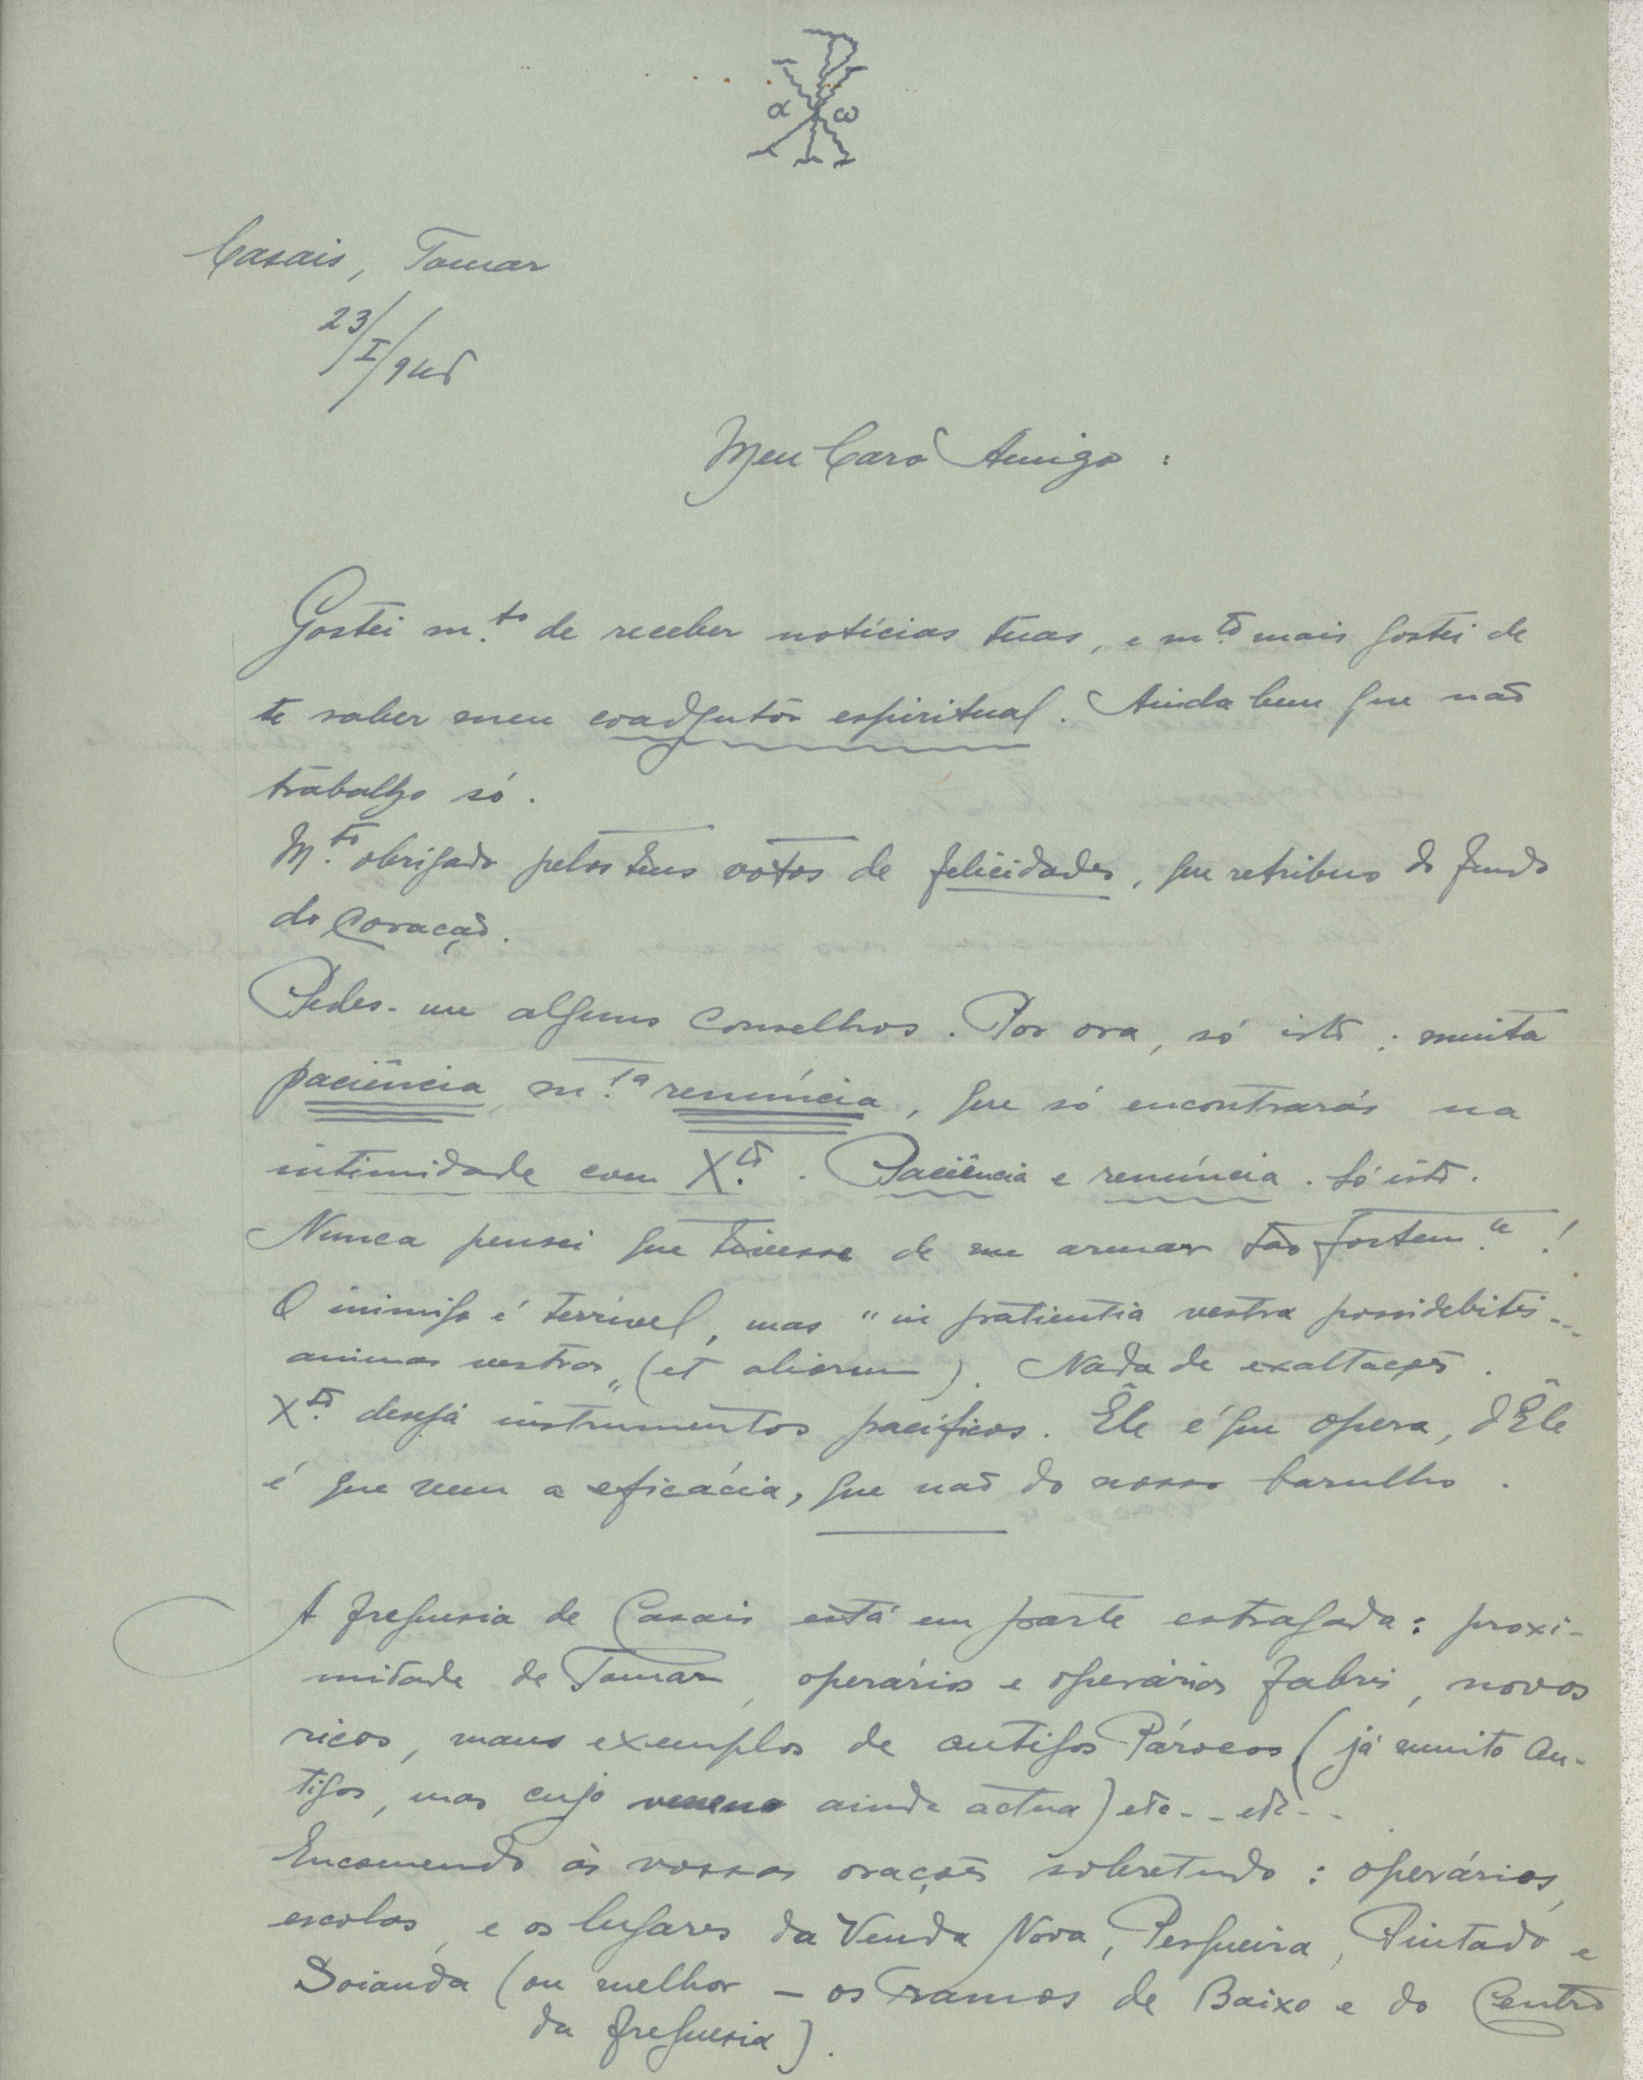 α ω
Casais, Tomar
23/I/945
Meu Caro Amigo:
Gostei m.to de receber notícias tuas, e m.to mais gostei de
te saber meu coadjutor espiritual. Ainda bem que não
trabalho só.
M.to obrigado pelos teus votos de felicidades, que retribuo do fundo
do Coração.
Pedes-me alguns Conselhos. Por ora, só isto: muita
paciência, m.ta renúncia, que só encontrarás na
intimidade com X.to. Paciência e renúncia. Só isto.
Nunca pensei que tivesse de me armar tão fortem.te!
O inimigo é terrível, mas "in patientia vestra possidebitis...
animas vestras" (et aliorum). Nada de exaltações.
X.to deseja instrumentos pacíficos. Êle é que opera, d'Êle
é que vem a eficácia, que não do nosso barulho.
A freguesia de Casais está em parte estragada: proxi-
midade de Tomar, operários e operárias fabris, novos
ricos, maus exemplos de antigos Párocos (já muito an-
tigos, mas cujo veneno ainda actua) etc-- etc--.
Encomendo às vossas orações sobretudo: operários,
escolas, e os lugares da Venda Nova, Pergueira, Pintado e
Soianda (ou melhor - os ramos de Baixo e do Centro
da freguesia).